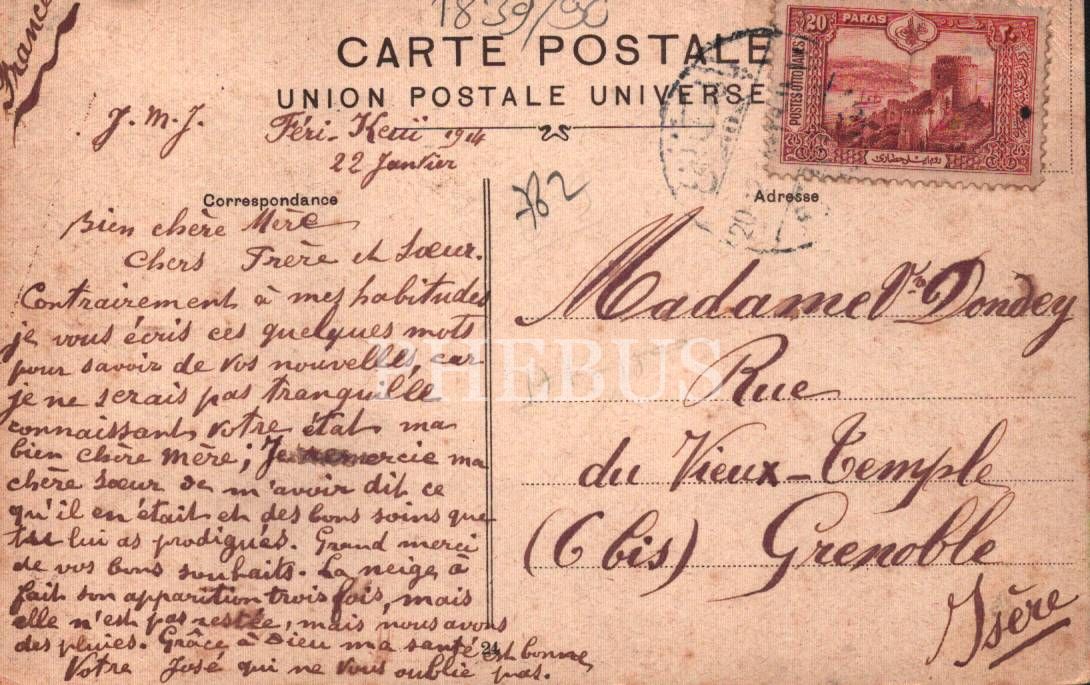 France
1839/90
CARTE POSTALE
UNION POSTALE UNIVERSE
J. M. J.
Féri-Keuï 1914
22 Janvier
25
782
Correspondance
Adresse
20 PARAS ٢٠
POSTES OTTOMANES
روم ايلى حصارى
Bien chère Mère
Chers Frère et Sœur.
Contrairement à mes habitudes
je vous écris ces quelques mots
pour savoir de vos nouvelles, car
je ne serais pas tranquille
connaissant votre état ma
bien chère Mère; Je remercie ma
chère Sœur de m'avoir dit ce
qu'il en était et des bons soins que
tu lui as prodigués. Grand merci
de vos bons souhaits. La neige à
fait son apparition trois fois, mais
elle n'est pas restée, mais nous avons
des pluies. Grâce à Dieu ma santé est bonne,
Votre José qui ne vous oublie pas.
24
Madame Vve Dondey
Rue
du Vieux-Temple
(6 bis) Grenoble
Isère
PHEBUS